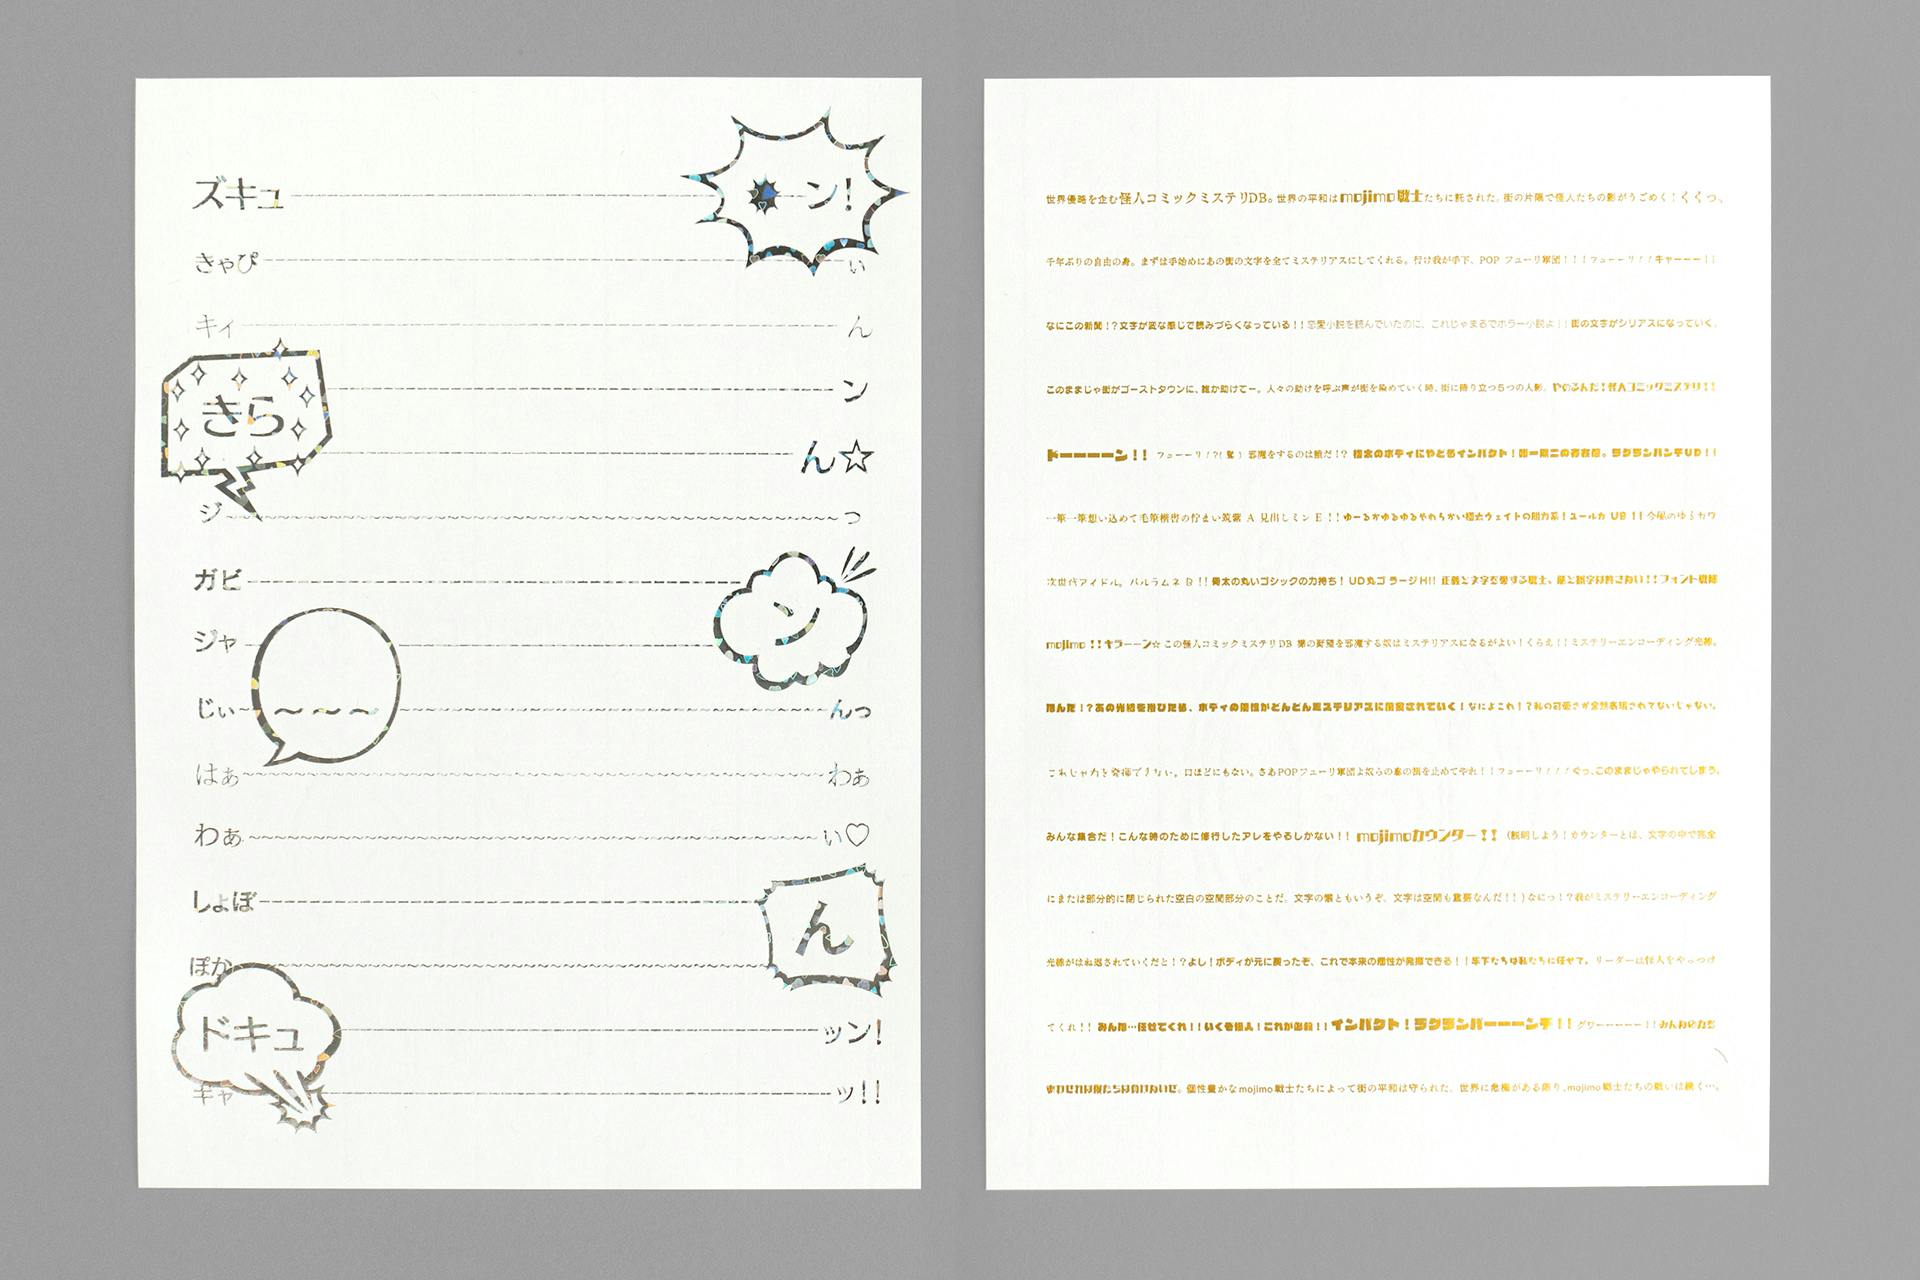 ズキュ ン!
きゃぴ い
キィ ん
きら ン
ん☆
ジ〜〜〜 っ
ガビ ン
ジャ
じぃ〜〜〜〜 んっ
はぁ〜〜〜 わぁ
わぁ〜〜〜 い♡
しょぼ ん
ぽか
ドキュ ッン!
ギャ ッ!!
世界侵略を企む怪人コミックミステリDB。世界の平和はmojimo戦士たちに託された。街の片隅で怪人たちの影がうごめく!くくっ、
千年ぶりの自由の身。まずは手始めにあの街の文字を全てミステリアスにしてくれる。行け我が手下、POP フューリ軍団!!!フューーリ!!キャーーー!!
なにこの新聞!?文字が変な感じで読みづらくなっている!!恋愛小説を読んでいたのに、これじゃまるでホラー小説よ!!街の文字がシリアスになっていく。
このままじゃ街がゴーストタウンに、誰か助けてー。人々の助けを呼ぶ声が街を染めていく時、街に降り立つ5つの人影。やめるんだ!怪人コミックミステリ!!
ドーーーーン!! フューーリ!?(驚) 邪魔をするのは誰だ!? 極太のボディにやどるインパクト!唯一無二の存在感。ラグランパンチUB!!
一筆一筆想い込めて毛筆楷書の佇まい筑紫 A 見出しミン E!!ゆーるかゆるゆるやわらかい極太ウェイトの脱力系!ユールカ UB!!今風のゆるカワ
次世代アイドル。パルラムネ B!!骨太の丸いゴシックの力持ち! UD丸ゴ ラージH!! 正義と文字を愛する戦士、 !!フォント戦隊
mojimo!!キラーーン☆ この怪人コミックミステリDB 様の野望を邪魔する奴はミステリアスになるがよい!くらえ!!ミステリーエンコーディング光線。
なんだ!?あの光線を浴びたら、ボディの個性がどんどんミステリアスに固定されていく!なによこれ!?私の可愛さが全然表現されてないじゃない。
これじゃ力を発揮できない。口ほどにもない。さあPOPフューリ軍団よ奴らの息の根を止めてやれ!!フューーリ!!!くっ、このままじゃやられてしまう。
みんな集合だ!こんな時のために修行したアレをやるしかない!! mojimoカウンター!! (説明しよう!カウンターとは、文字の中で完全
にまたは部分的に閉じられた空白の空間部分のことだ。文字の懐ともいうぞ。文字は空間も重要なんだ!!)なにっ!?我がミステリーエンコーディング
光線がはね返されていくだと!?よし!ボディが元に戻ったぞ、これで本来の個性が発揮できる!!手下たちは私たちに任せて。リーダーは怪人をやっつけ
てくれ!! みんな…任せてくれ!!いくぞ怪人!これが必殺!!インパクト!ラグランパーーーンチ!!グワーーーーー!!みんなの力を
合わせれば僕たちは負けないぜ。個性豊かなmojimo戦士たちによって街の平和は守られた。世界に危機がある限り、mojimo戦士たちの戦いは続く…。